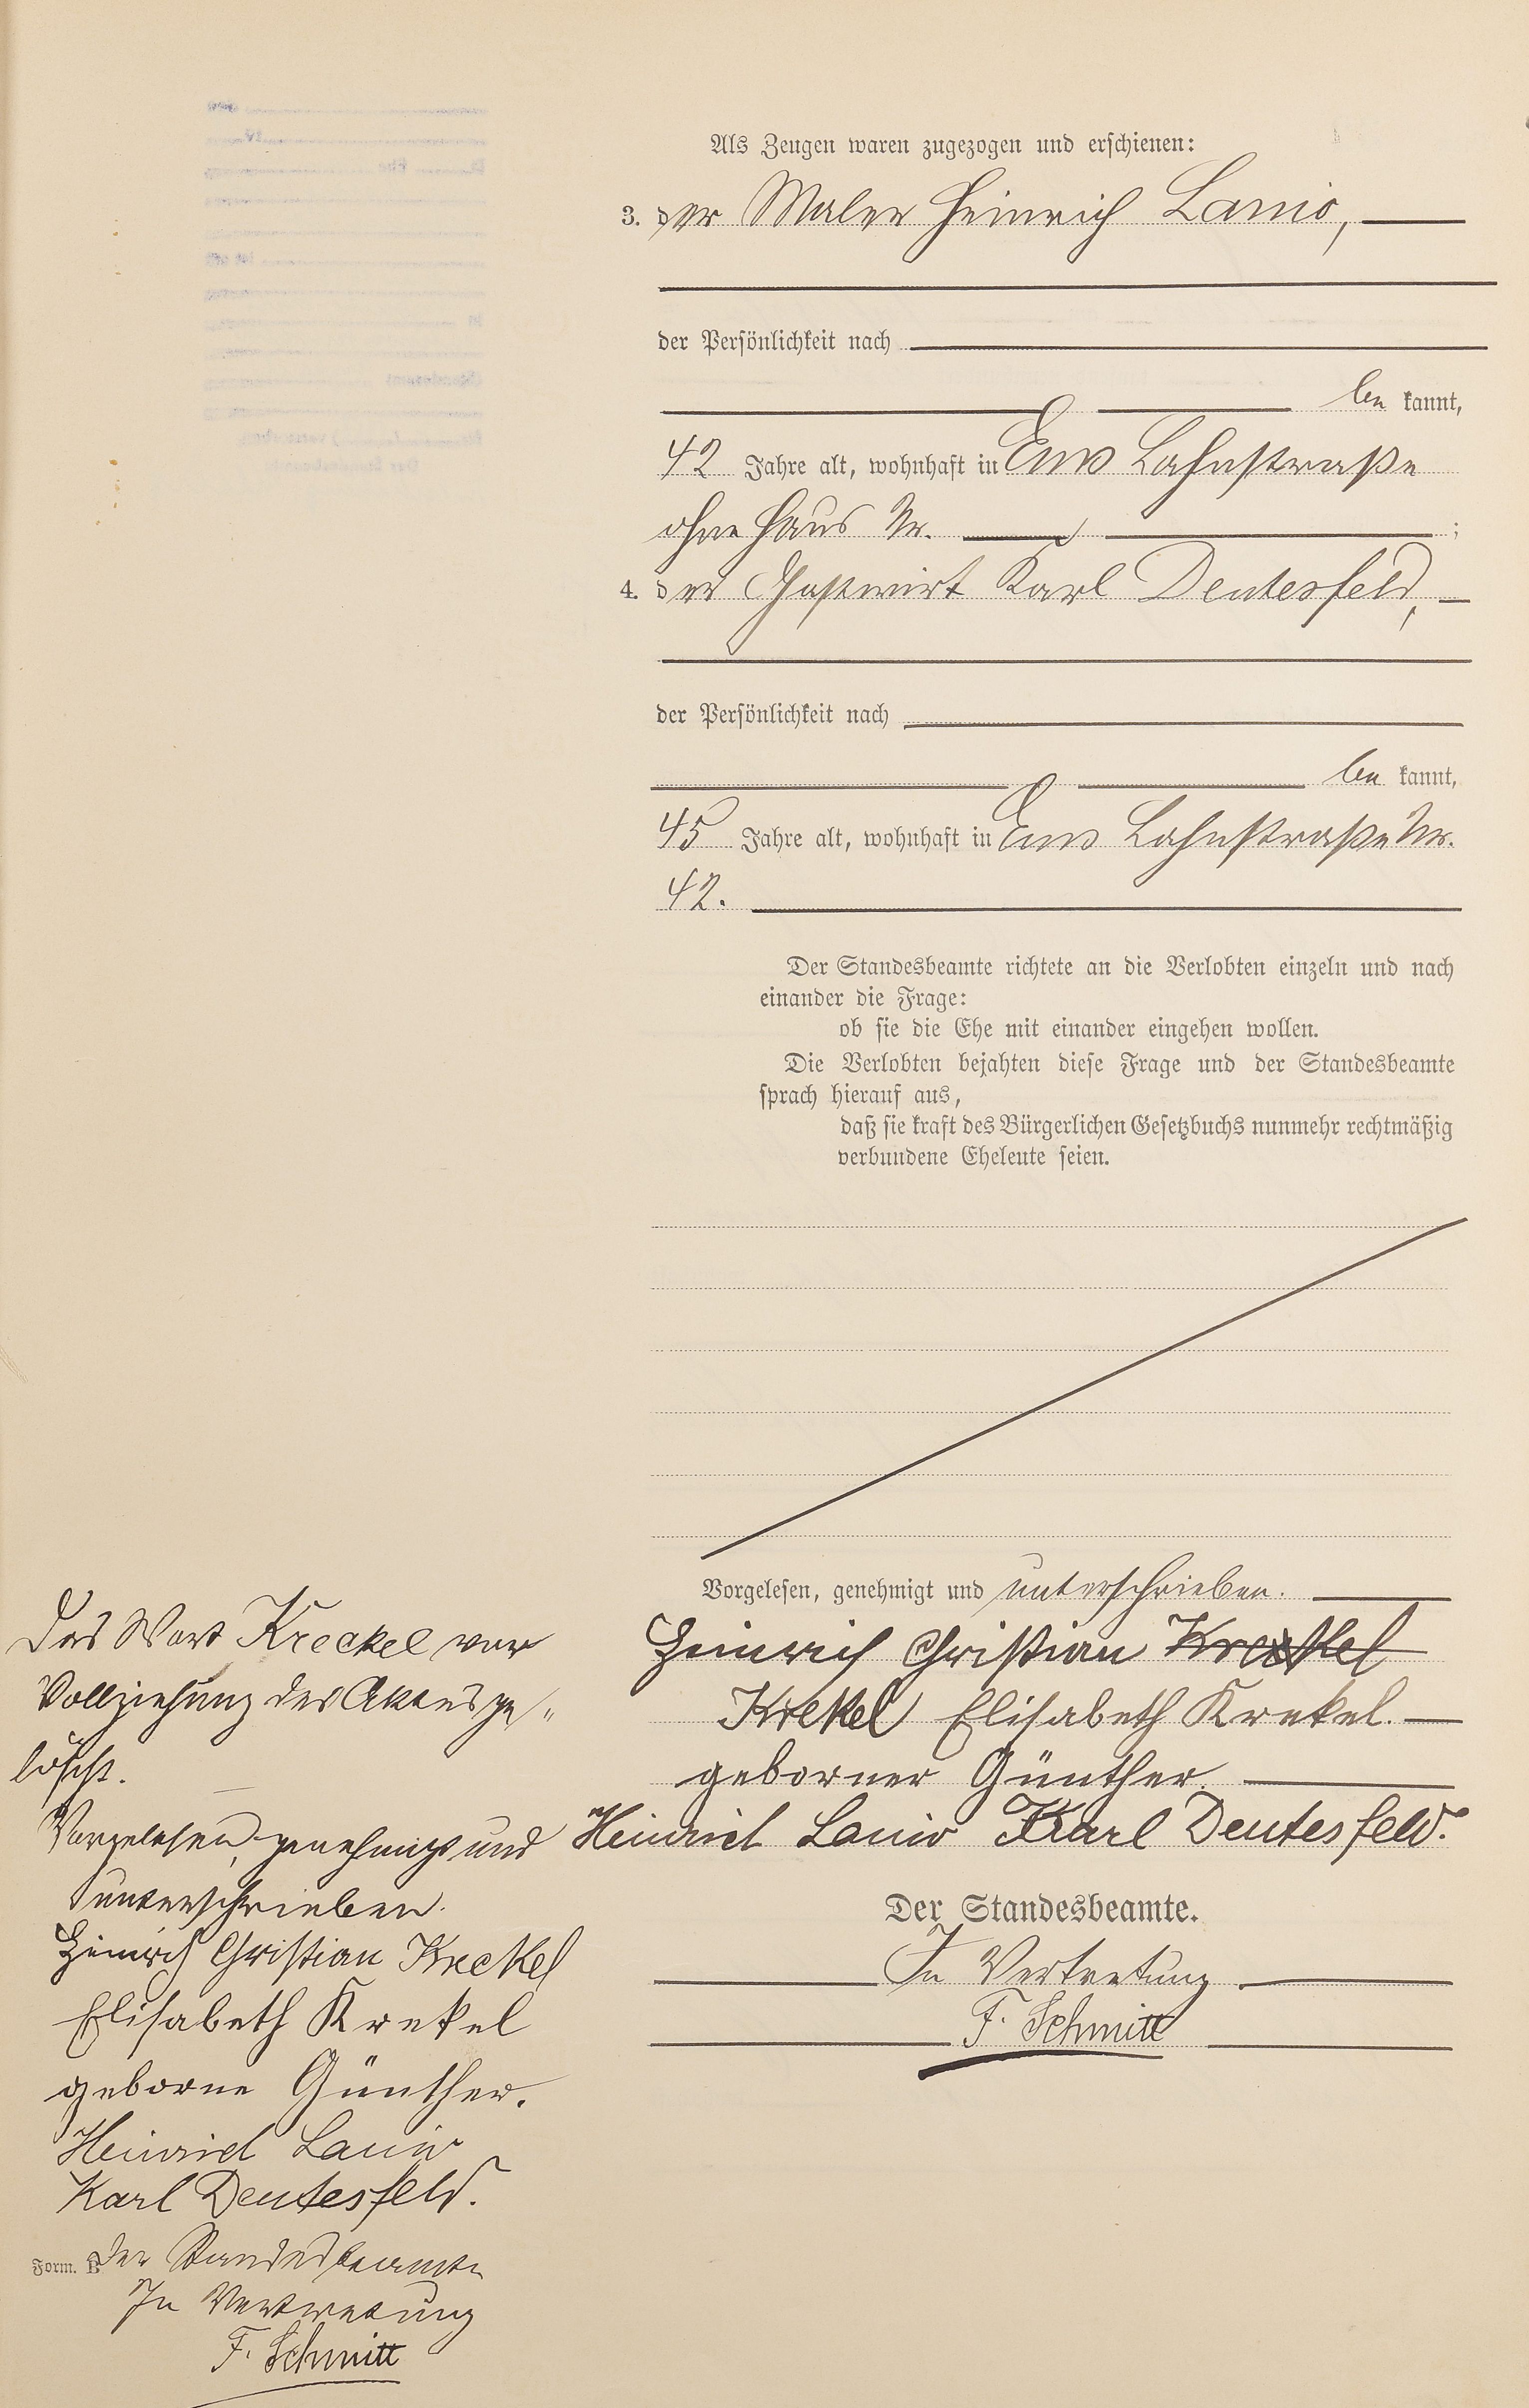 Als Zeugen waren zugezogen und erschienen:
3. der Maler Heinrich Lanio,
der Persönlichkeit nach
be kannt,
42 Jahre alt, wohnhaft in Ems Lahnstraße
ohne Haus Nr. ;
4. der Gastwirt Karl Deutesfeld,
der Persönlichkeit nach
be kannt,
45 Jahre alt, wohnhaft in Ems Lahnstraße Nr.
42.
Der Standesbeamte richtete an die Verlobten einzeln und nach
einander die Frage:
ob sie die Ehe mit einander eingehen wollen.
Die Verlobten bejahten diese Frage und der Standesbeamte
sprach hierauf aus,
daß sie kraft des Bürgerlichen Gesetzbuchs nunmehr rechtmäßig
verbundene Eheleute seien.
Vorgelesen, genehmigt und unterschrieben.
Heinrich Christian Kreckel
Krekel Elisabeth Krekel.
geborner Günther.
Heinrich Lanio Karl Deutesfeld.
Der Standesbeamte.
In Vertretung
F. Schmitt
Das Wort Kreckel vor
Vollziehung des Aktes ge„
löscht.
Vorgelesen, genehmigt und
unterschrieben.
Heinrich Christian Krekel
Elisabeth Krekel
geborne Günther.
Heinrich Lanio
Karl Deutesfeld.
Form. B
Der Standesbeamte
In Vertretung
F. Schmitt